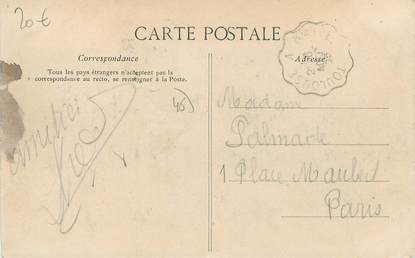 20€
CARTE POSTALE
Correspondance
Tous les pays étrangers n'acceptent pas la
correspondance au recto, se renseigner à la Poste.
Adresse
TOULOUSE
Madame
Palmade
1 Place Maubert
Paris